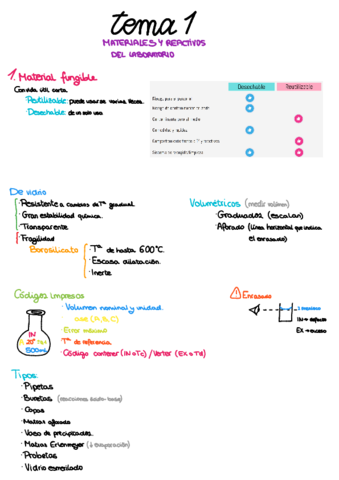 tema 1
MATERIALES Y REACTIVOS
DEL LABORATORIO
1. Material fungible
Con vida útil corta.
Reutilizable: puede usarse varias veces.
Desechable: de un solo uso.
Desechable
Reutilizable
De vidrio
· Resistente a cambios de Tª gradual.
· Gran estabilidad química.
· Transparente
· Fragilidad
Borosilicato
· Tª de hasta 600°C.
· Escasa dilatación.
· Inerte
Volumétricos (medir volumen)
· Graduados (escalan)
· Aforado (línea horizontal que indica
el enrasado)
Códigos impresos
· Volumen nominal y unidad.
(A, B, C)
· Error máximo
· Tª de referencia.
· Código contener (IN o Tc) / Verter (EX o Td)
IN
A 20°
500ml
Enrasado
IN→
EX→exceso
Tipos:
· Pipetas
· Buretas (reacciones ácido-base)
· Copas
· Matraz aforado
· Vaso de precipitados.
· Matraz Erlenmeyer (↓ evaporación)
· Probetas
· Vidrio esmerilado